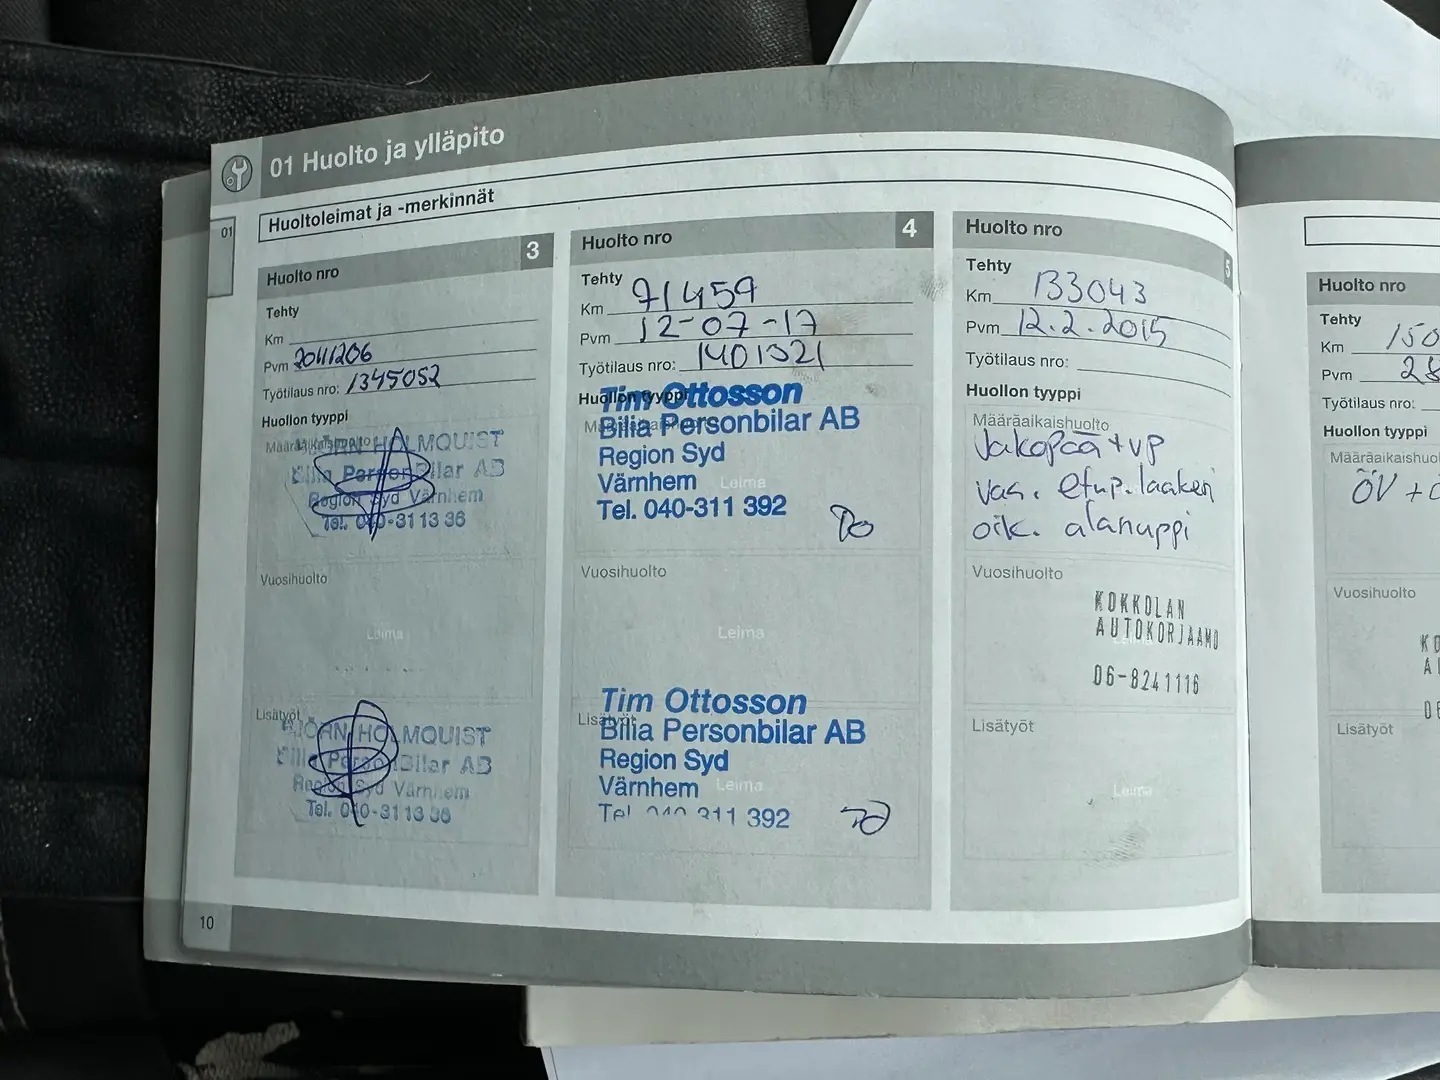 01 Huolto ja ylläpito
01
Huoltoleimat ja -merkinnät
Huolto nro 3
Tehty
Km
Pvm 2011206
Työtilaus nro: 1345052
Huollon tyyppi
Määräaikaishuolto
BJÖRN HOLMQUIST
Bilia Personbilar AB
Region Syd Värnhem
Tel. 040-31 13 36
Vuosihuolto
Leima
Lisätyöt
BJÖRN HOLMQUIST
Bilia Personbilar AB
Region Syd Värnhem
Tel. 040-31 13 36
10
Huolto nro 4
Tehty
Km 91459
Pvm 12-07-17
Työtilaus nro: 1401321
Huollon tyyppi
Tim Ottosson
Bilia Personbilar AB
Region Syd
Värnhem Leima
Tel. 040-311 392
Vuosihuolto
Leima
Tim Ottosson
Lisätyöt
Bilia Personbilar AB
Region Syd
Värnhem Leima
Tel 040 311 392
Huolto nro 5
Tehty
Km 133043
Pvm 12.2.2015
Työtilaus nro:
Huollon tyyppi
Määräaikaishuolto
Jakopää + vp
vas. etup. laakeri
oik. alanuppi
Vuosihuolto
KOKKOLAN
AUTOKORJAAMO
06-8241116
Lisätyöt
Leima
Huolto nro
Tehty
Km 150
Pvm 28
Työtilaus nro:
Huollon tyyppi
Määräaikaishuol
ÖV + Ö
Vuosihuolto
KO
A
06
Lisätyöt